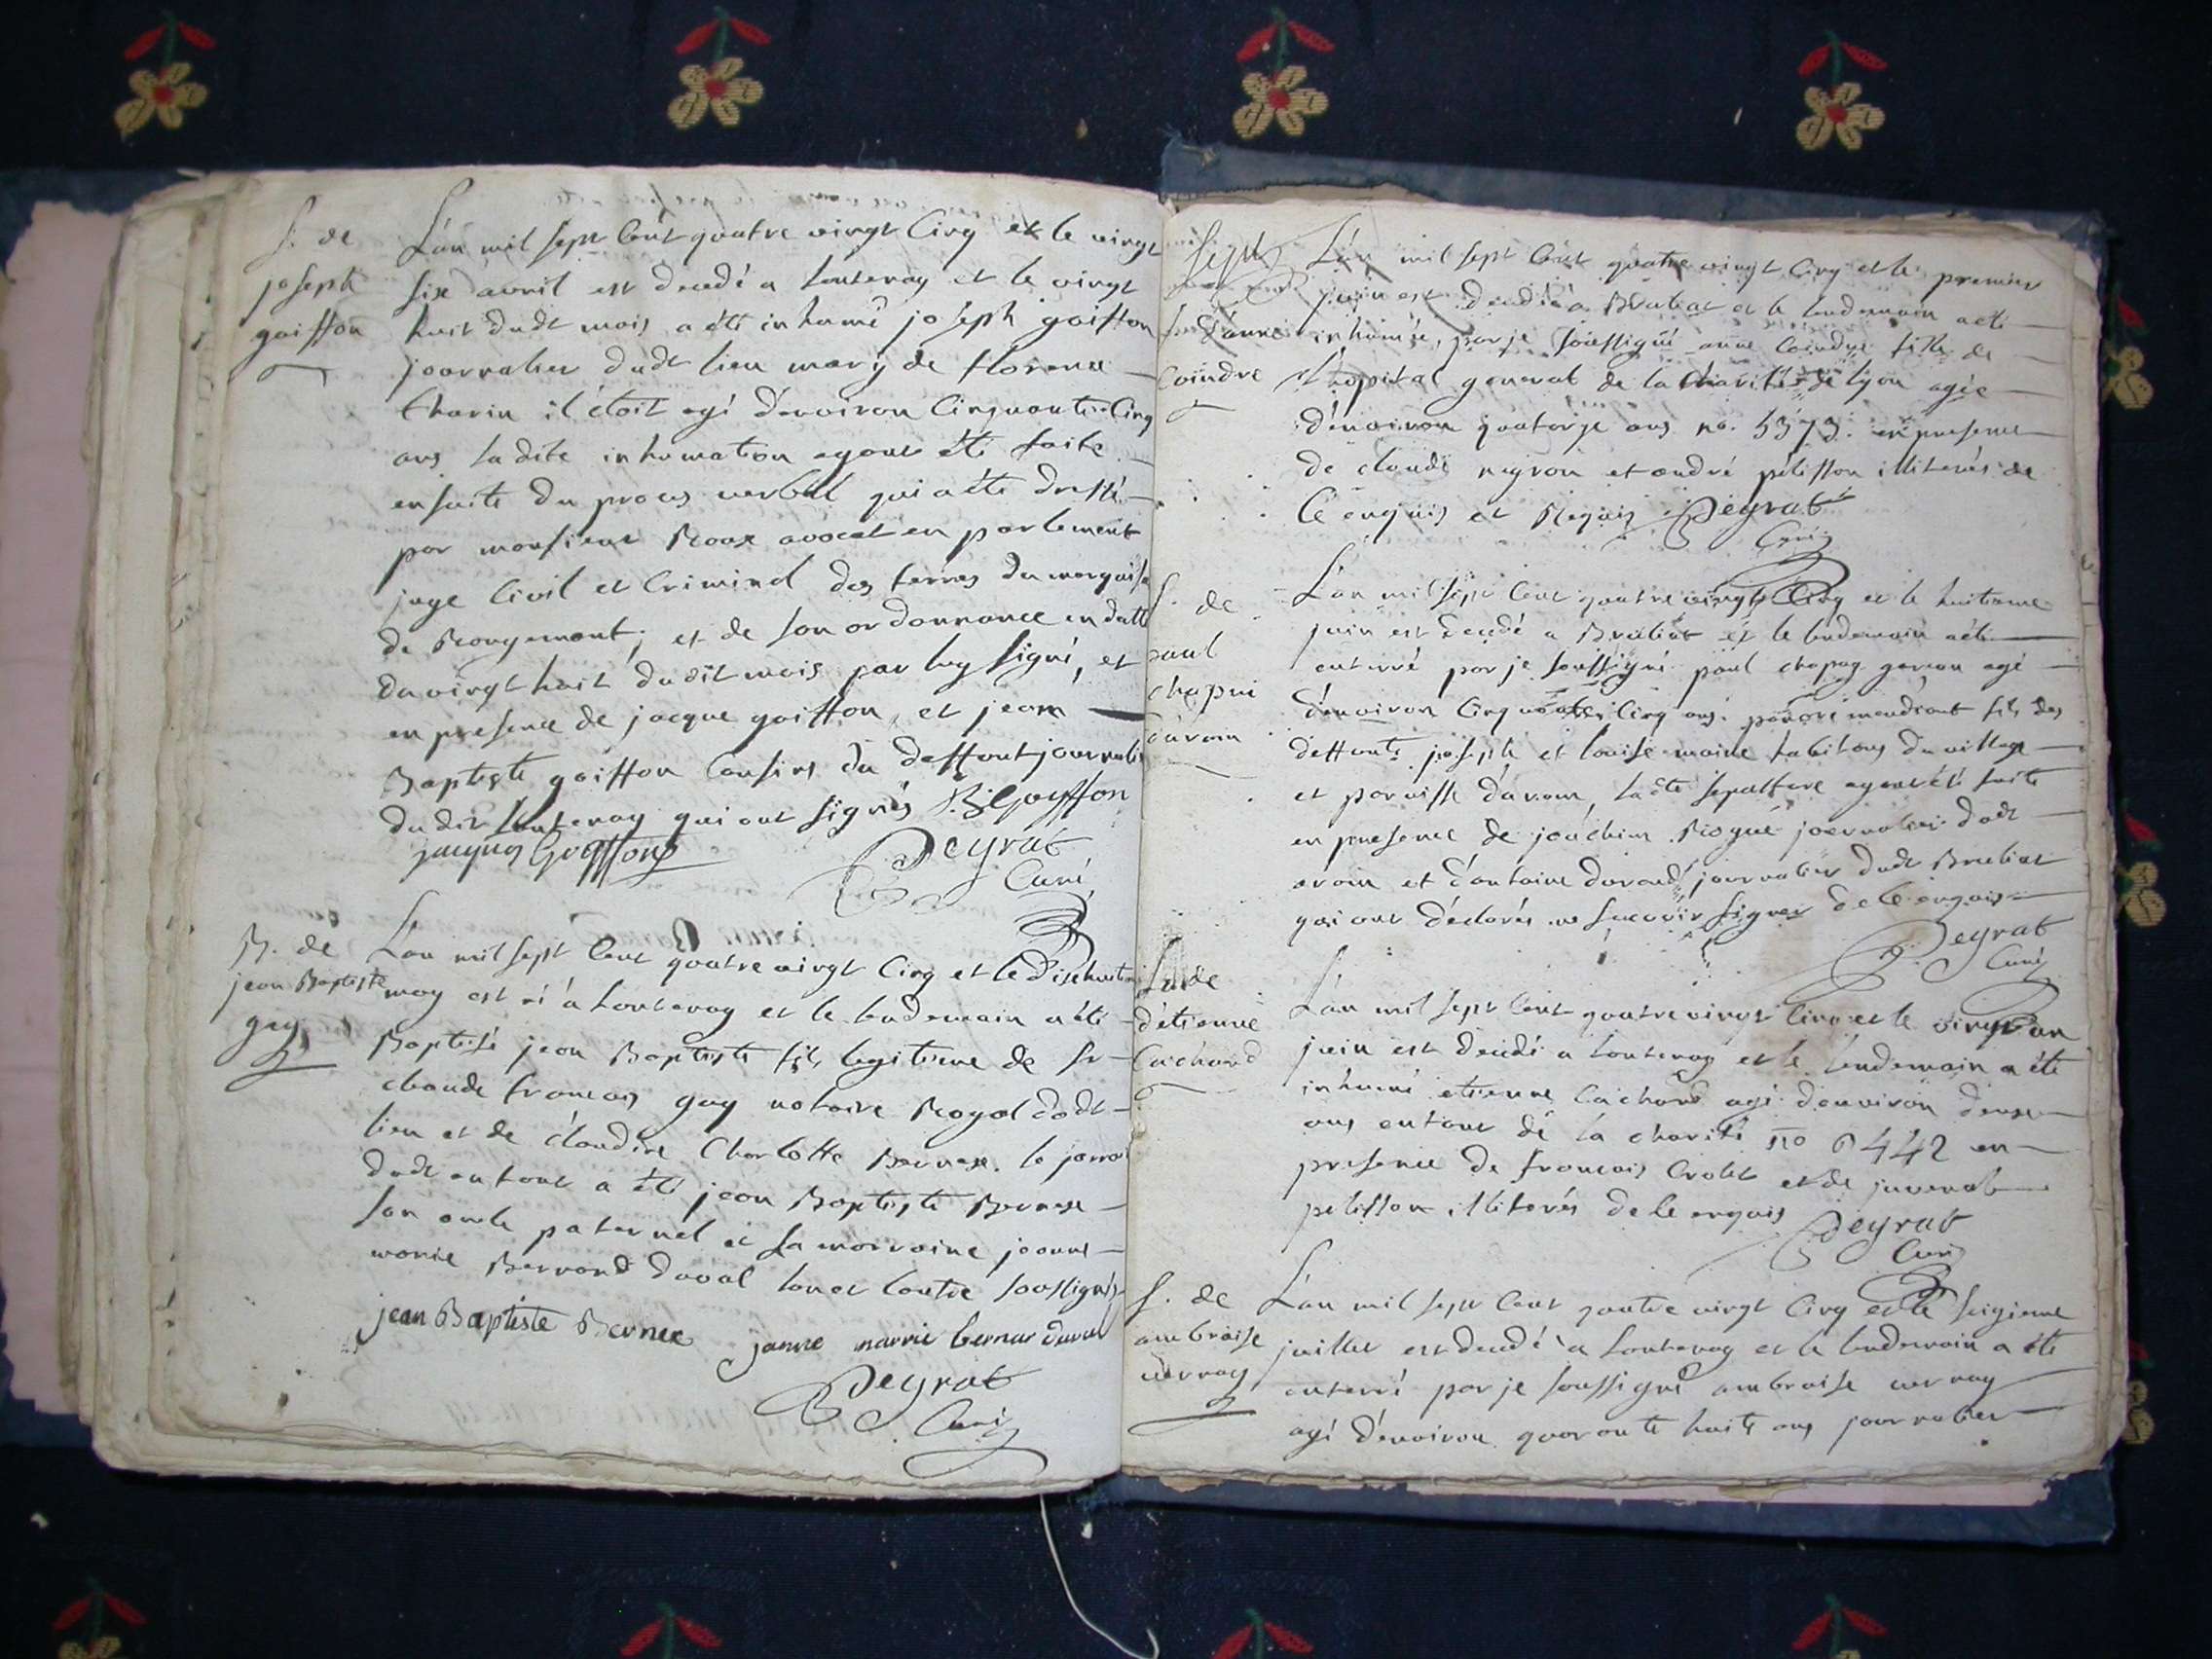 S. de
joseph
goiffon
L'an mil sept Cent quatre vingt Cinq et le vingt
six avril est decedé a Lonteray et le vingt
huit dudt mois a été inhumé joseph goiffon
journalier dudt lieu mary de florence
Charin il étoit agé d'environ Cinquante Cinq
ans la dite inhumation ayant été faite
ensuite du proces verbal qui a été dressé
par monsieur Roux avocat en parlement
juge Civil et Criminel des terres du marquisa
de Rougemont; et de son ordonnance en datte
du vingt huit dudit mois par luy signé, et
en presence de jacque goiffon, et jean
Baptiste goiffon Cousins du deffunt journalie
dudit Lonteray qui ont signés Goyffon
jacques Goyffon Peyrat
Curé
B. de
jean Baptiste
guy
L'an mil sept Cent quatre vingt Cinq et le dixhuit
may est né a Lonteray et le lendemain a été
Baptisé jean Baptiste fils legitime de Sr
claude francois guy notaire Royal dudt
lieu et de claudine Charlotte Bernex. le parra
dudt enfant a été jean Baptiste Bernex
son oncle paternel et sa marraine jeanne
marie Bernard duval l'un et l'autre soussignés
jean Baptiste Bernex janne marrie bernar duval
Peyrat
Curé
Sept
S. d'anne
Coindre
L'an mil sept Cent quatre vingt Cinq et le premier
juin est decedée a Brulliat et le lendemain a été
inhumée, par je soussigné anne Coindre fille de
l'hopital general de la Charité de lyon agée
d'environ quatorze ans no. 5373. en presence
de claude neyron et andré pelisson illiterés de
Ce enquis et Requis Peyrat
Curé
S. de
paul
chapui
d'arom
L'an mil sept Cent quatre vingt Cinq et le huitieme
juin est decedé a Brulliat et le lendemain a été
enterré par je soussigné paul chapuy garcon agé
d'environ Cinquante Cinq ans. pauvre mendiant fils des
deffunts joseph et louise maine habitans du village
et paroisse d'arom, la dte sepulture ayant été faite
en presence de joachim Rogué journalier dudt
arom et d'antoine durand journalier dudt Brulliat
qui ont déclarés ne sçavoir signer de Ce enquis
Peyrat
Curé
S. de
d'etienne
Cachard
L'an mil sept Cent quatre vingt Cinq et le vingt un
juin est decedé a Lonteray et le lendemain a été
inhumé etienne Cachard agé d'environ deux
ans enfant de la charité no 6442 en
presence de francois Crolet et de juvenal
pelisson illiterés de Ce enquis
Peyrat
Curé
S. de
ambroise
uernay
L'an mil sept Cent quatre vingt Cinq et le seizieme
juillet est decedé a Lonteray et le lendemain a été
enterré par je soussigné ambroise uernay
agé d'environ quarante huit ans journalier